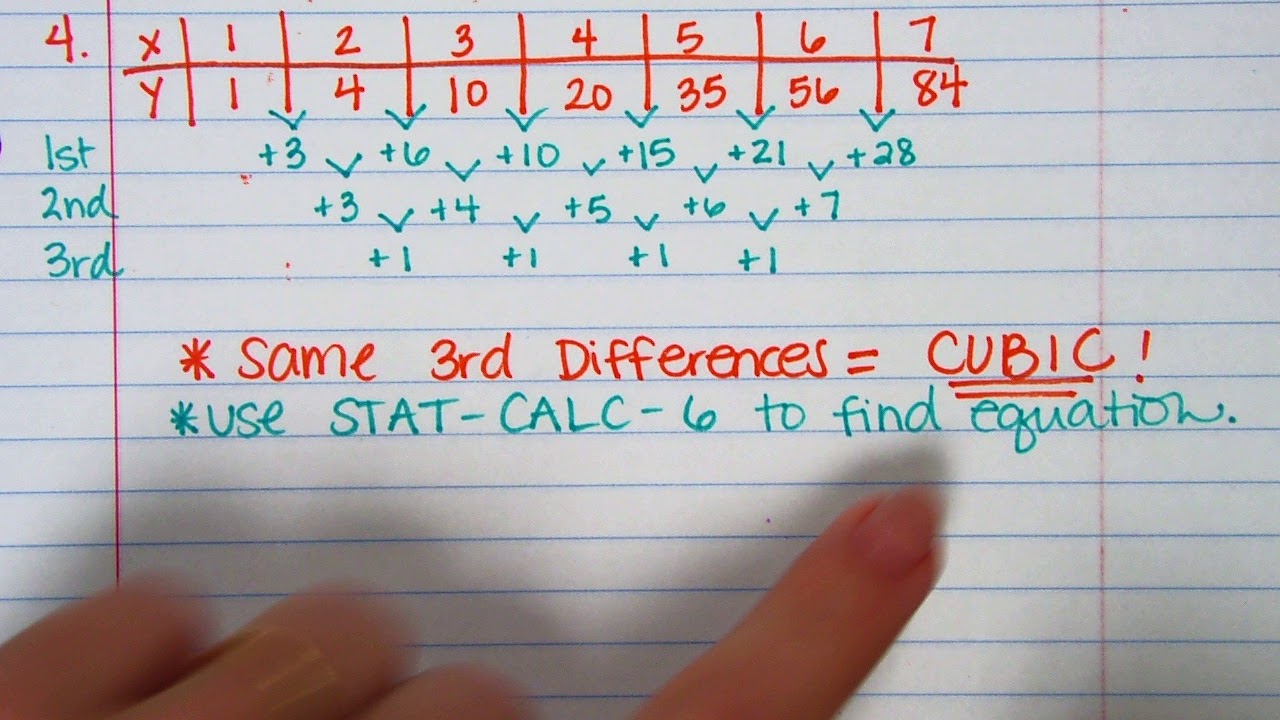 4. X 1 2 3 4 5 6 7
Y 1 4 10 20 35 56 84
1st +3 +6 +10 +15 +21 +28
2nd +3 +4 +5 +6 +7
3rd +1 +1 +1 +1
* Same 3rd Differences = CUBIC!
* USE STAT-CALC-6 to find equation.